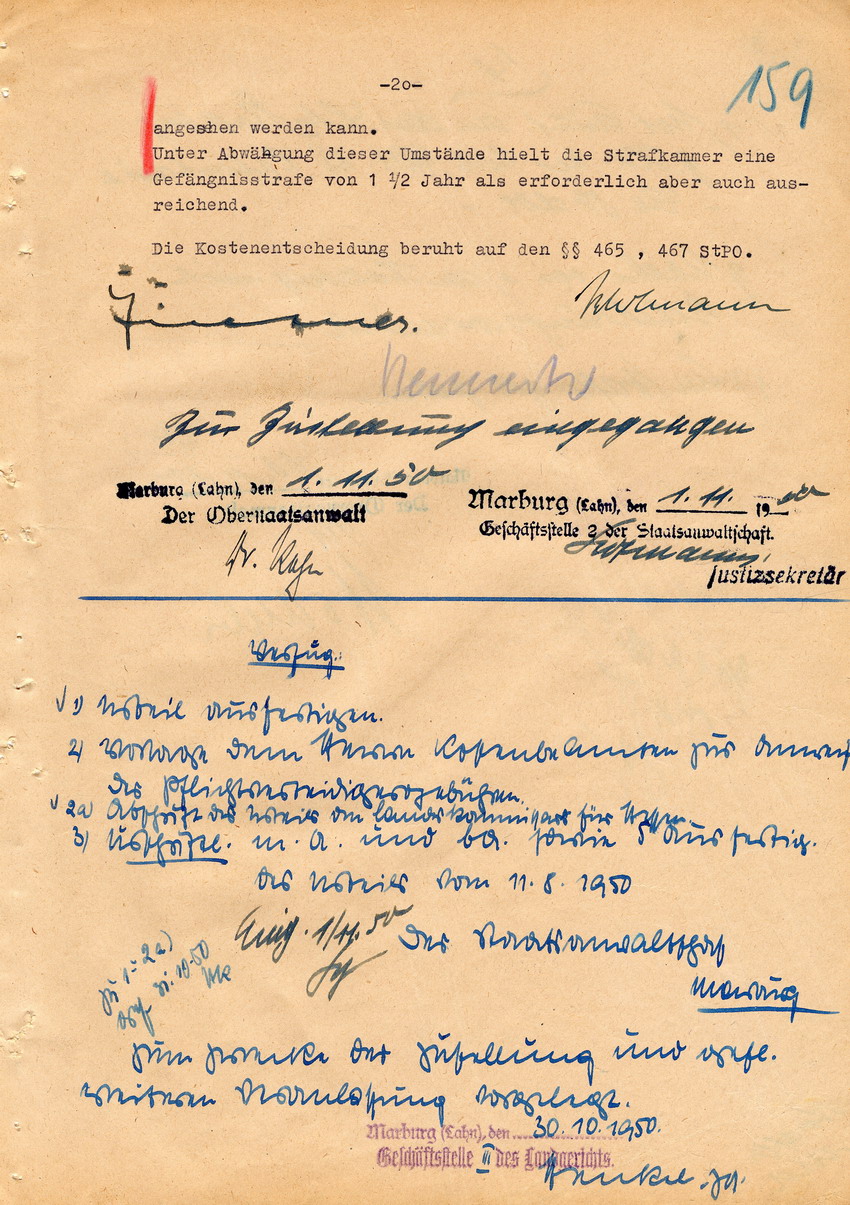 -2o-
159
angesehen werden kann.
Unter Abwähgung dieser Umstände hielt die Strafkammer eine
Gefängnisstrafe von 1 1/2 Jahr als erforderlich aber auch aus-
reichend.
Die Kostenentscheidung beruht auf den §§ 465 , 467 StPO.
Zur Zustellung eingegangen
Marburg (Lahn), den 1. 11. 50
Der Oberstaatsanwalt
Marburg (Lahn), den 1. 11. 19
Geschäftsstelle 2 der Staatsanwaltschaft.
Justizsekretär
Verfüg.
√ 1) Urteil ausfertigen.
2) Vorlage dem Herrn Kostenbeamten zur
der Pflichtverteidigergebühren.
√ 2a) Abschrift des Urteils dem Landeskommissar für Hessen
3) Urschriftl. m. A. und bd. sowie 5 Ausfertig.
des Urteils vom 11. 8. 1950
1/11. 50
Der Staatsanwaltschaft
Marburg
zu 1 u 2a)
zum Zwecke der Zustellung und gefl.
weiteren Veranlassung vorgelegt.
Marburg (Lahn), den 30. 10. 1950.
Geschäftsstelle II des Landgerichts.